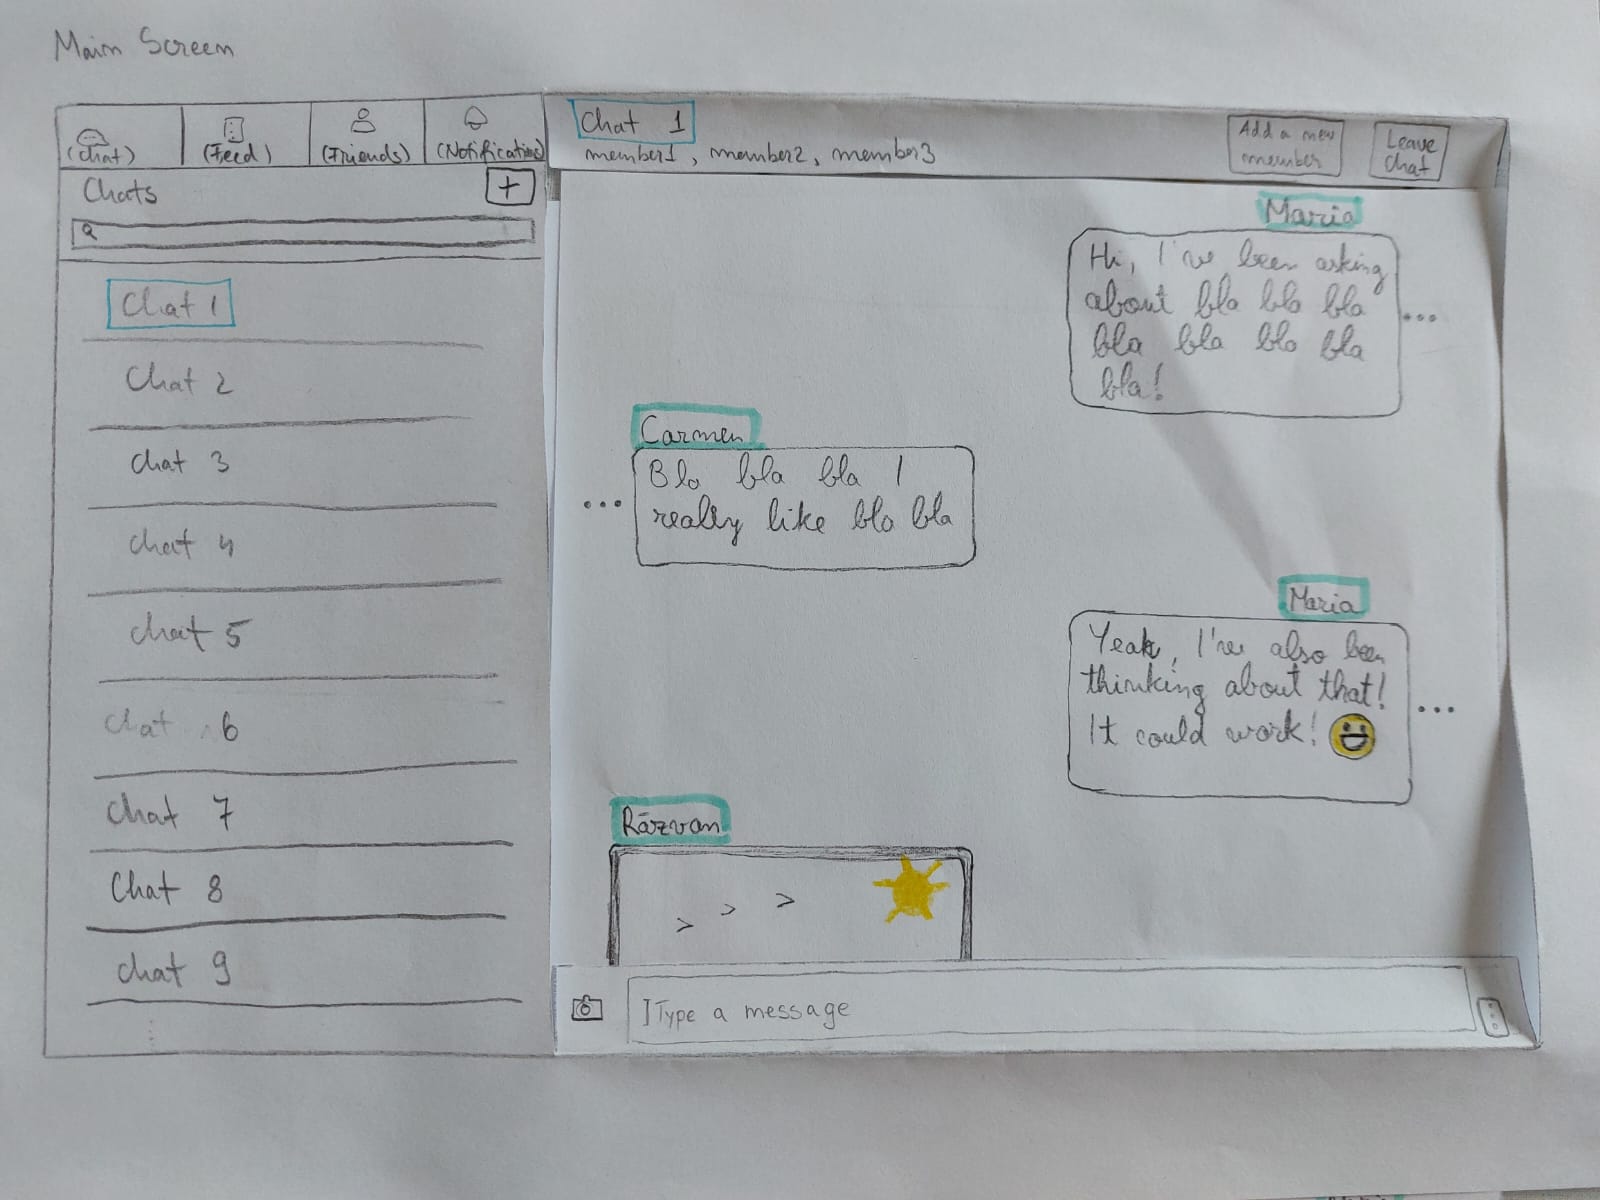 Main Screen
(Chat)
(Feed)
(Friends)
(Notifications)
Chats
+
Chat 1
Chat 2
Chat 3
Chat 4
Chat 5
Chat 6
Chat 7
Chat 8
Chat 9
Chat 1
member1, member2, member3
Add a new
member
Leave
Chat
Maria
Hi, I've been asking
about bla bla bla
bla bla bla bla
bla!
...
Carmen
Bla bla bla I
really like bla bla
...
Maria
Yeah, I've also been
thinking about that!
It could work!
...
Răzvan
Type a message